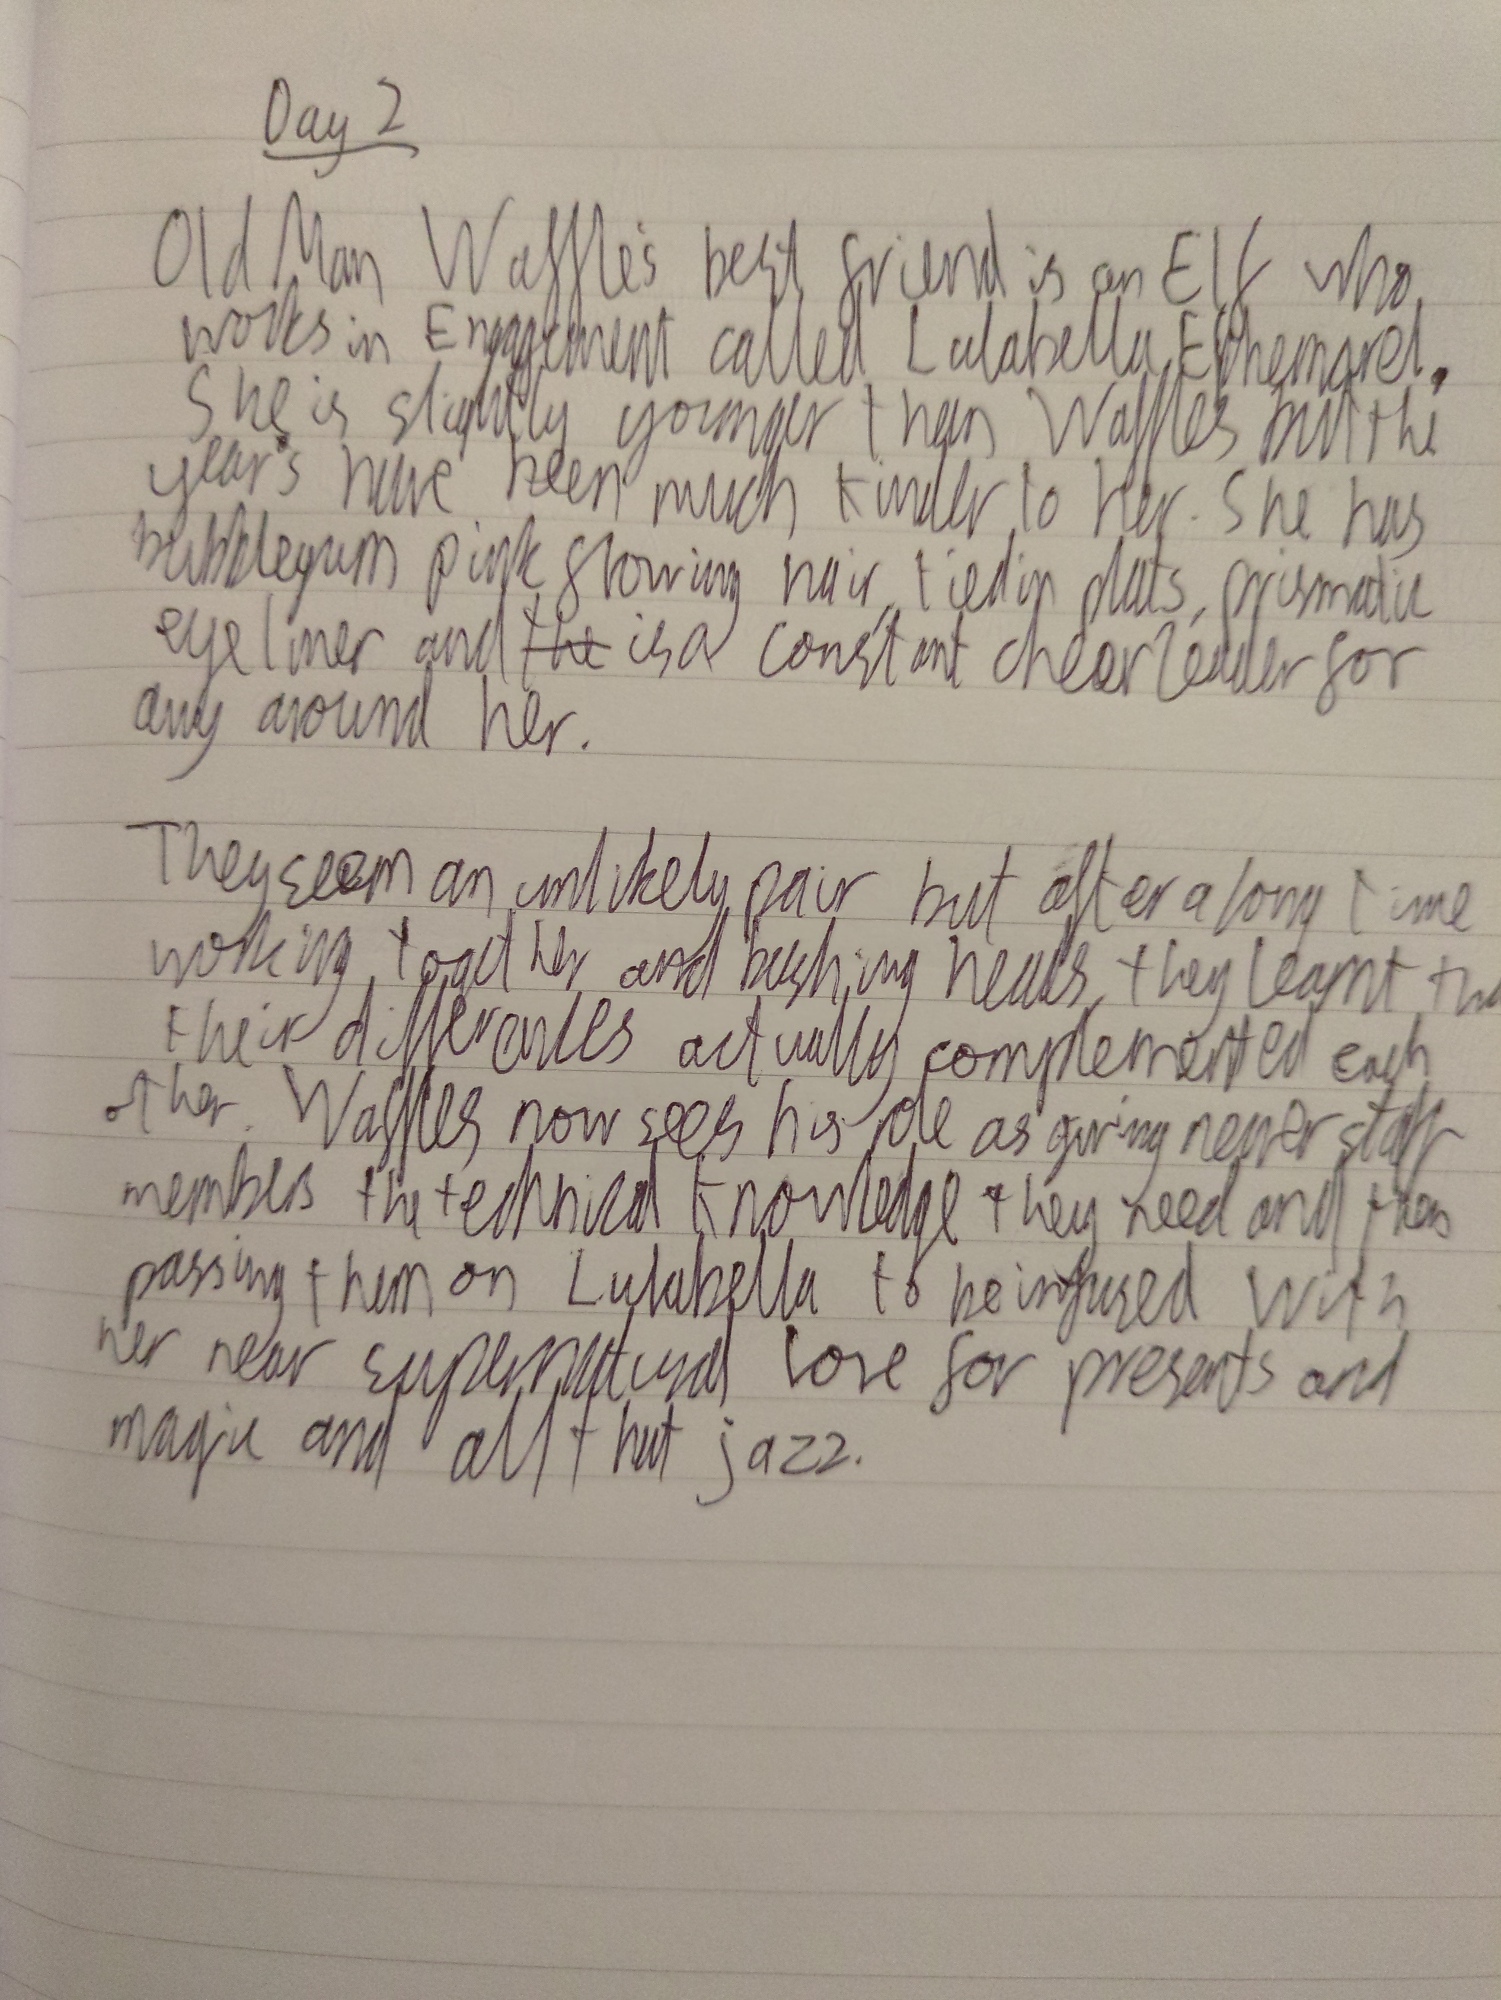 Day 2
Old Man Waffles's best friend is an Elf who
works in Engagement called Lulabella
She is slightly younger than Waffles but the
years have been much kinder to her. She has
bubblegum pink flowing hair, tied in plats, prismatic
eyeliner and the is a constant cheerleader for
any around her.
They seem an unlikely pair but after a long time
working together and bashing heads, they learnt
their differences actually complemented each
other. Waffles now sees his role as giving newer staff
members the technical knowledge they need and then
passing them on Lulabella to be infused with
her near supernatural love for presents and
magic and all that jazz.